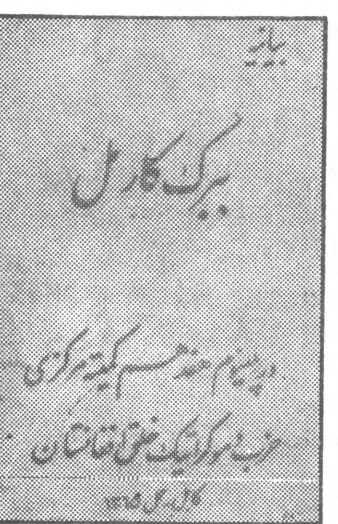 بیانیه
ببرک کارمل
در پلینوم هفدهم کمیته مرکزی
حزب دموکراتیک خلق افغانستان
کابل ۱۳۶۵